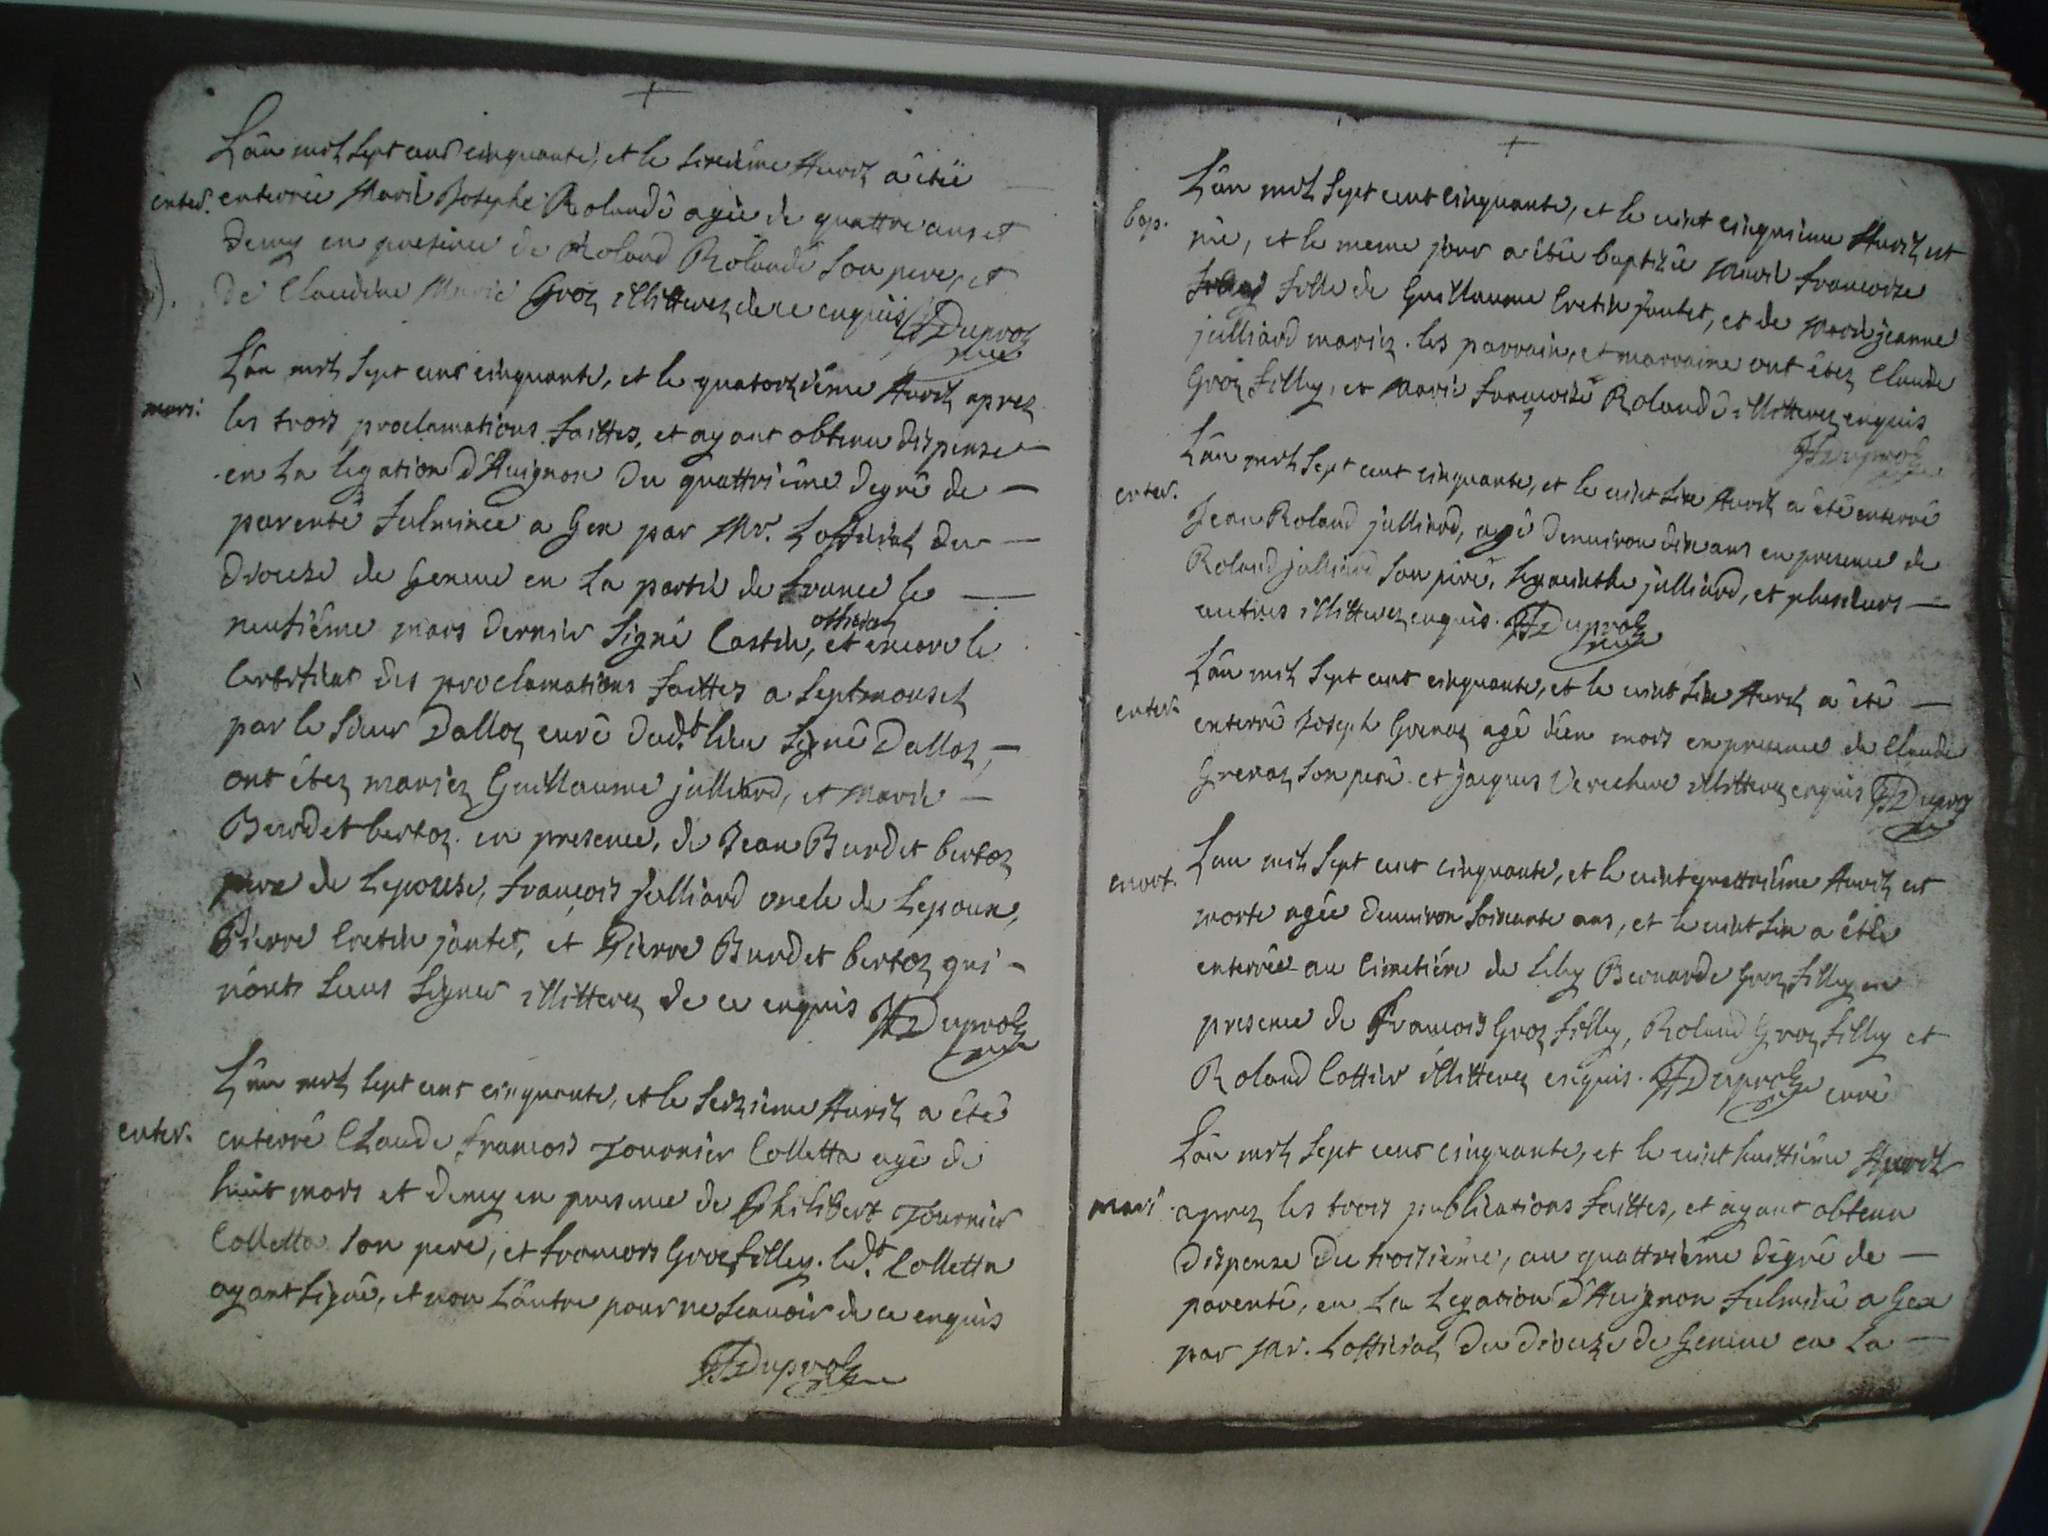 L'an mil sept cens cinquante, et le sixiéme Avril a étée
enter. enterrée Marie Josephe Rolandé agée de quattre ans et
demy en presence de Roland Rolandé son pere, et
de Claudine Marie Groz illitterez de ce enquis JF Duproz
L'an mil sept cens cinquante, et le quatorziéme Avril aprez
mari: les trois proclamations faittes, et ayant obtenu dispense
en la legation d'Avignon du quattriéme degré de
parenté fulminée a Gex par Mr. Lofficial du
Diocese de Geneve en la partie de france le
neufiéme mars dernier signé Castin, official et encore le
Certificat des proclamations faittes a Septmoncel
par le sieur Dalloz curé dud.t lieu signé Dalloz,
ont étez mariez Guillaume julliard, et Marie
Burdet bertoz en presence, de Jean Burdet bertoz
pere de Lepouse, françois julliard oncle de Lepoux,
Pierre Cretin jantet, et Pierre Burdet bertoz qui
n'ont sceus signer illitterez de ce enquis JF Duproz
L'an mil sept cens cinquante, et le seiziéme Avril a été
enter. enterré Claude francois Tournier Colletta agé de
huit mois et demy en presence de Philibert Tournier
Colletta son pere, et francois Groz filley. led.t Colletta
ayant signé, et non L'autre pour ne scavoir de ce enquis
JF Duproz
L'an mil sept cent cinquante, et le vint cinquiéme Avril est
bap. née, et le meme jour a étée baptizée Marie francoize
fille de Guillaume Cretin jantet, et de Marie jeanne
julliard mariez. les parrain, et marraine ont étez Claude
Groz filley, et Marie francoise Rolandé illitterez enquis
JF Duproz
L'an mil sept cent cinquante, et le vint six Avril a été enterré
enter. Jean Roland julliard, agé d'environ dix ans en presence de
Roland julliard son pere, hyacinthe julliard, et plusieurs
autres illitterez enquis. JF Duproz
L'an mil sept cent cinquante, et le vint six Avril a été
enter. enterré Joseph Grenaz agé d'un mois en presence de Claude
Grenaz son pere et jacques Verechere illitterez enquis JF Duproz
L'an mil sept cent cinquante, et le vint quattriéme Avril est
mort. morte agée d'environ soixante ans, et le vint six a étée
enterrée au Cimetiére de Bernarde Groz filley en
presence de francois Groz filley, Roland Groz filley et
Roland Cottier illitterez enquis. JF Duproz curé
L'an mil sept cens cinquante, et le vint huittiéme Avril
mari aprez les trois publications faittes, et ayant obtenu
dispense du troisiéme, au quattriéme dégré de
parenté, en La Legation d'Avignon fulminé a Gex
par Mr. Lofficial du diocese de Geneve en la